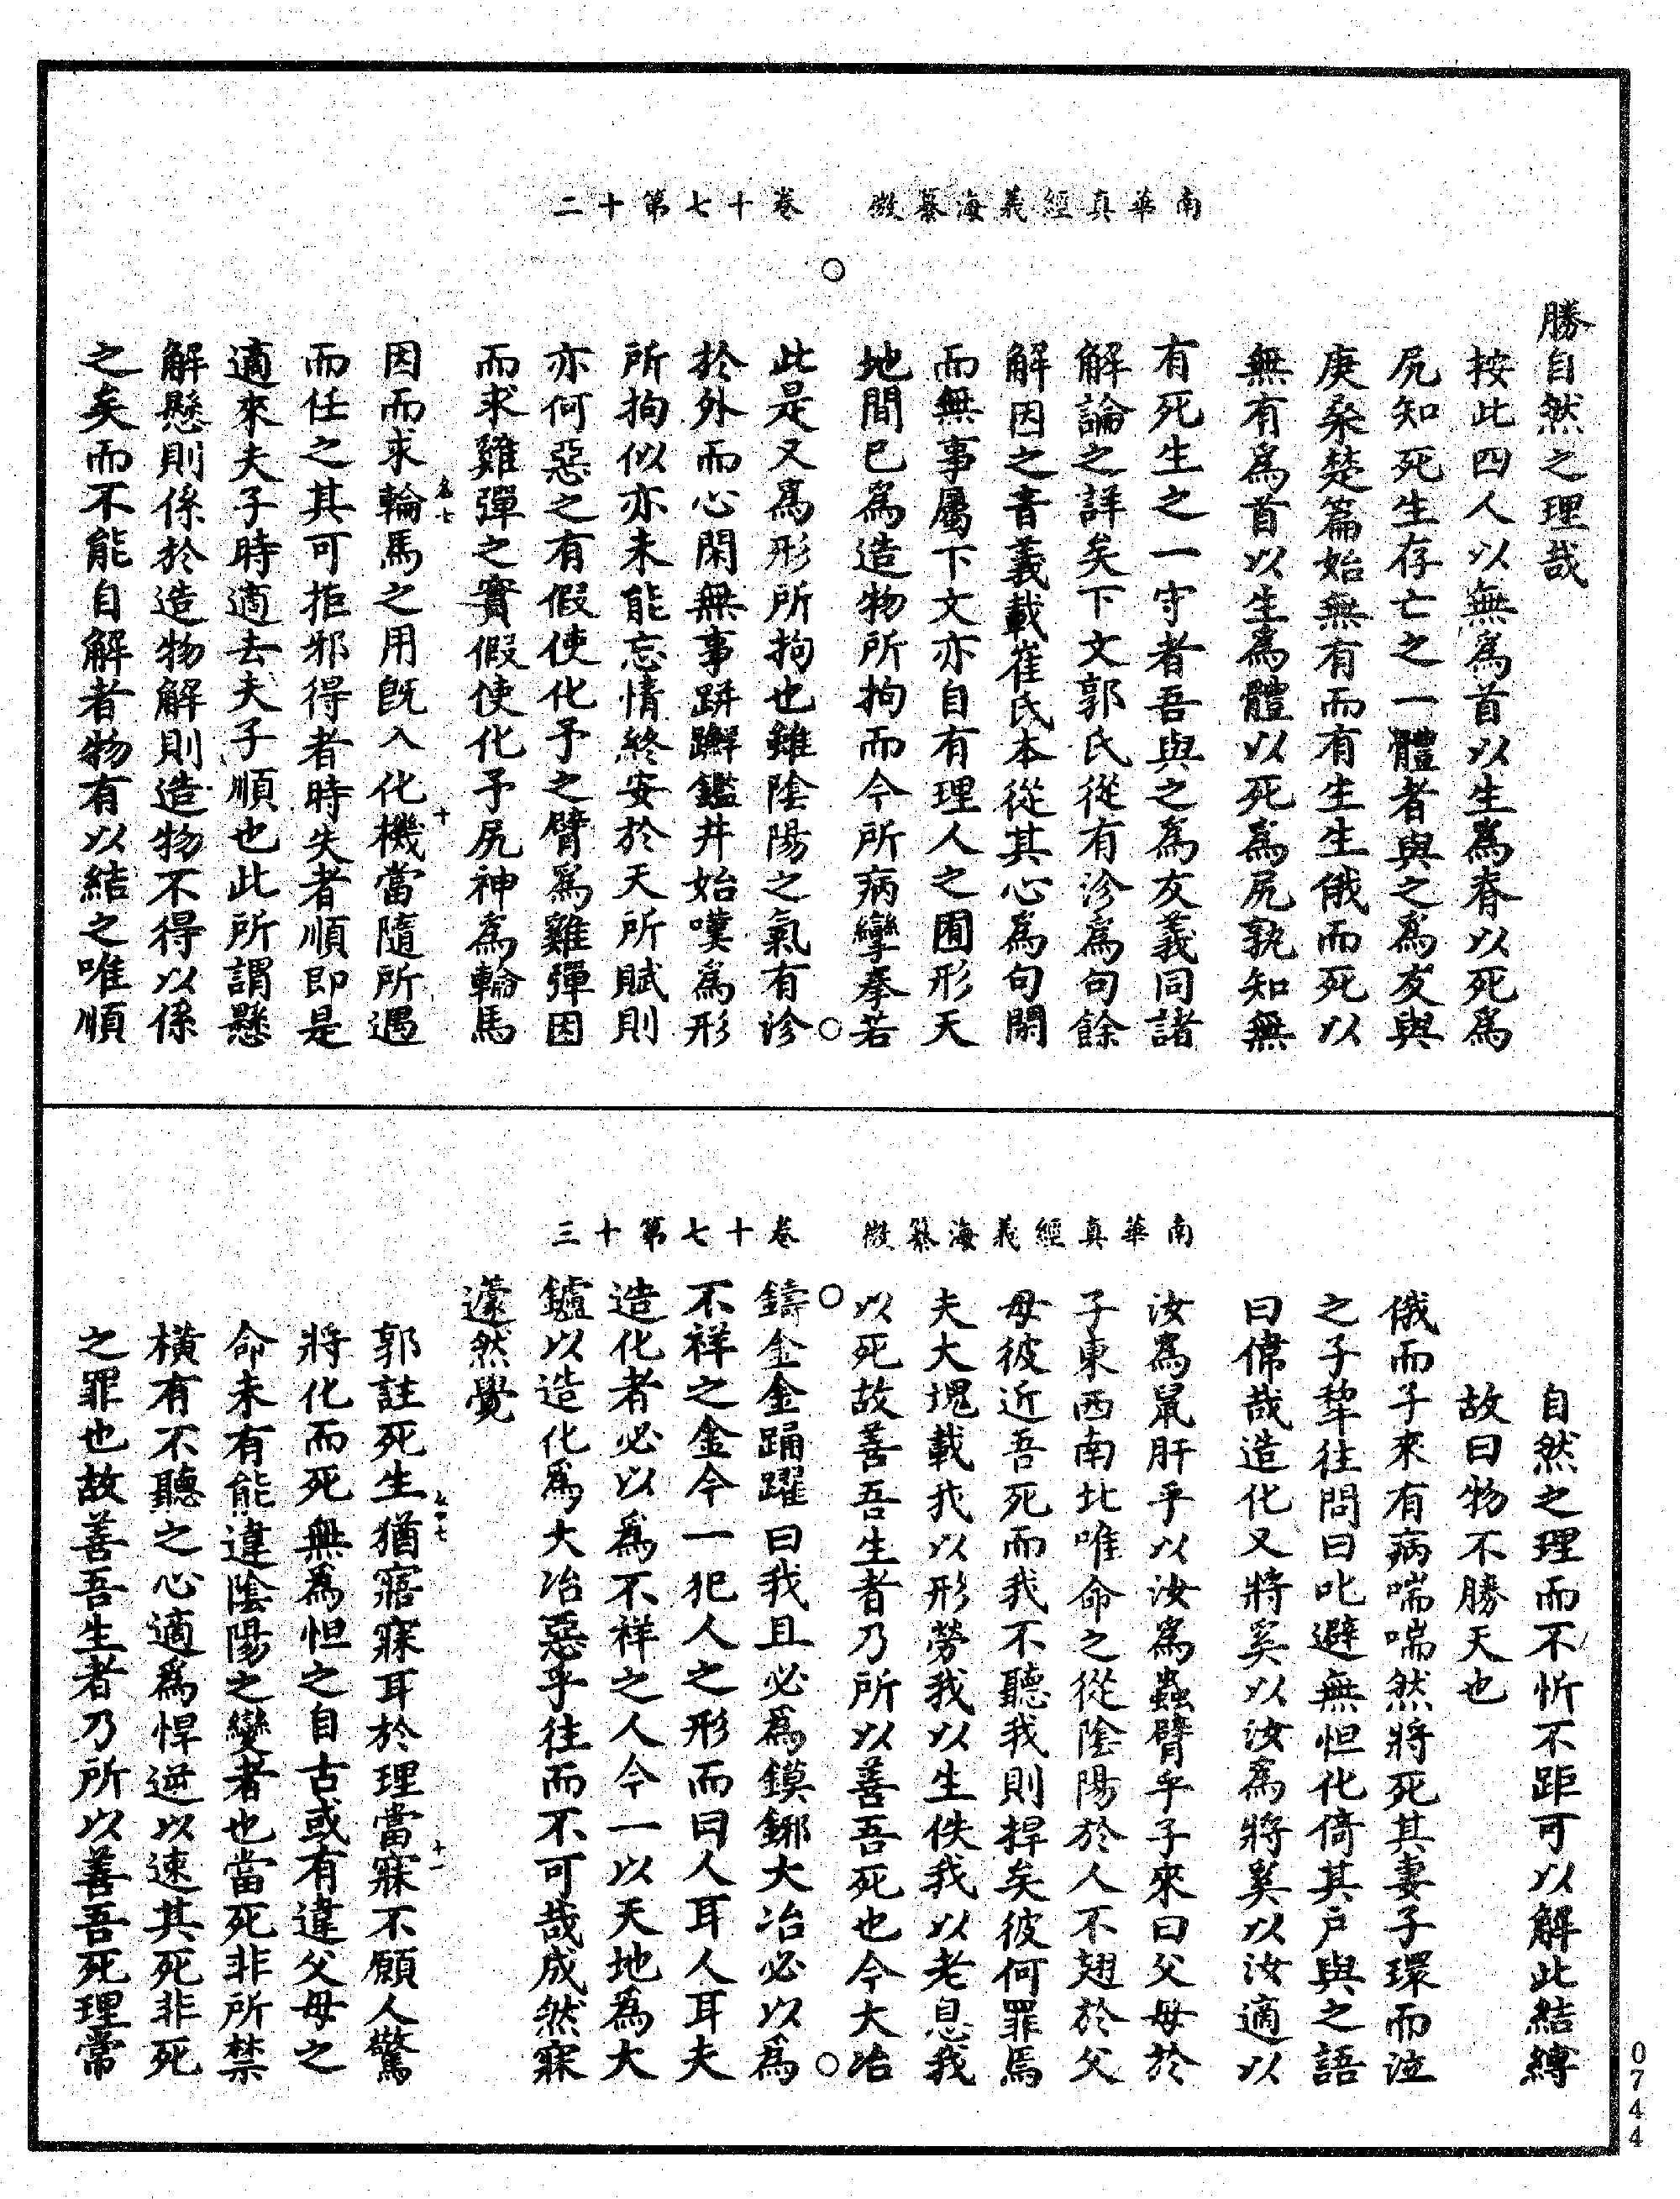 南華真經義海纂微　卷十七第十二
勝自然之理哉
按此四人以無爲首以生爲脊以死爲
尻知死生存亡之一體者與之爲友與
庚桑楚篇始無有而有生生俄而死以
無有爲首以生爲體以死爲尻孰知無
有死生之一守者吾與之爲友義同諸
解論之詳矣下文郭氏從有沴爲句餘
解因之音義載崔氏本從其心爲句閑
而無事屬下文亦自有理人之囿形天
地間已爲造物所拘而今所病攣拳若
此是又爲形所拘也雖陰陽之氣有沴
於外而心閑無事跰𨇤鑑井始嘆爲形
所拘似亦未能忘情終安於天所賦則
亦何惡之有假使化予之臂爲雞彈因
而求雞彈之實假使化予尻神爲輪馬
因而求輪馬之用旣入化機當隨所遇
而任之其可拒邪得者時失者順即是
適來夫子時適去夫子順也此所謂懸
解懸則係於造物解則造物不得以係
之矣而不能自解者物有以結之唯順
南華真經義海纂微　卷十七第十三
自然之理而不忻不距可以解此結縛
故曰物不勝天也
俄而子來有病喘喘然將死其妻子環而泣
之子犂往問曰叱避無怛化倚其户與之語
曰偉哉造化又將奚以汝爲將奚以汝適以
汝爲鼠肝乎以汝爲蟲臂乎子來曰父母於
子東西南北唯命之從陰陽於人不翅於父
母彼近吾死而我不聽我則捍矣彼何罪焉
夫大塊載我以形勞我以生佚我以老息我
以死故善吾生者乃所以善吾死也今大冶
鑄金金踊躍曰我且必爲鏌鋣大冶必以爲
不祥之金今一犯人之形而曰人耳人耳夫
造化者必以爲不祥之人今一以天地爲大
鑪以造化爲大冶惡乎往而不可哉成然寐
蘧然覺
郭註死生猶寤寐耳於理當寐不願人驚
將化而死無爲怛之自古或有違父母之
命未有能違陰陽之變者也當死非所禁
橫有不聽之心適爲悍逆以速其死非死
之罪也故善吾生者乃所以善吾死理常
0744